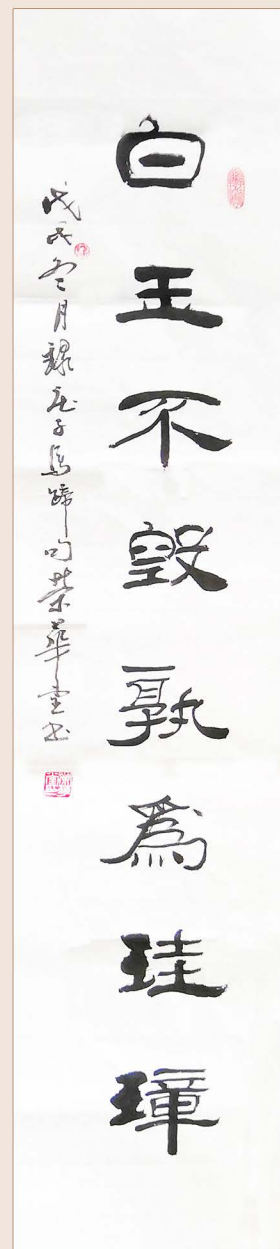 白玉不毁孰為珪璋
戊戌冬月録庄子馬蹄句荣華堂书